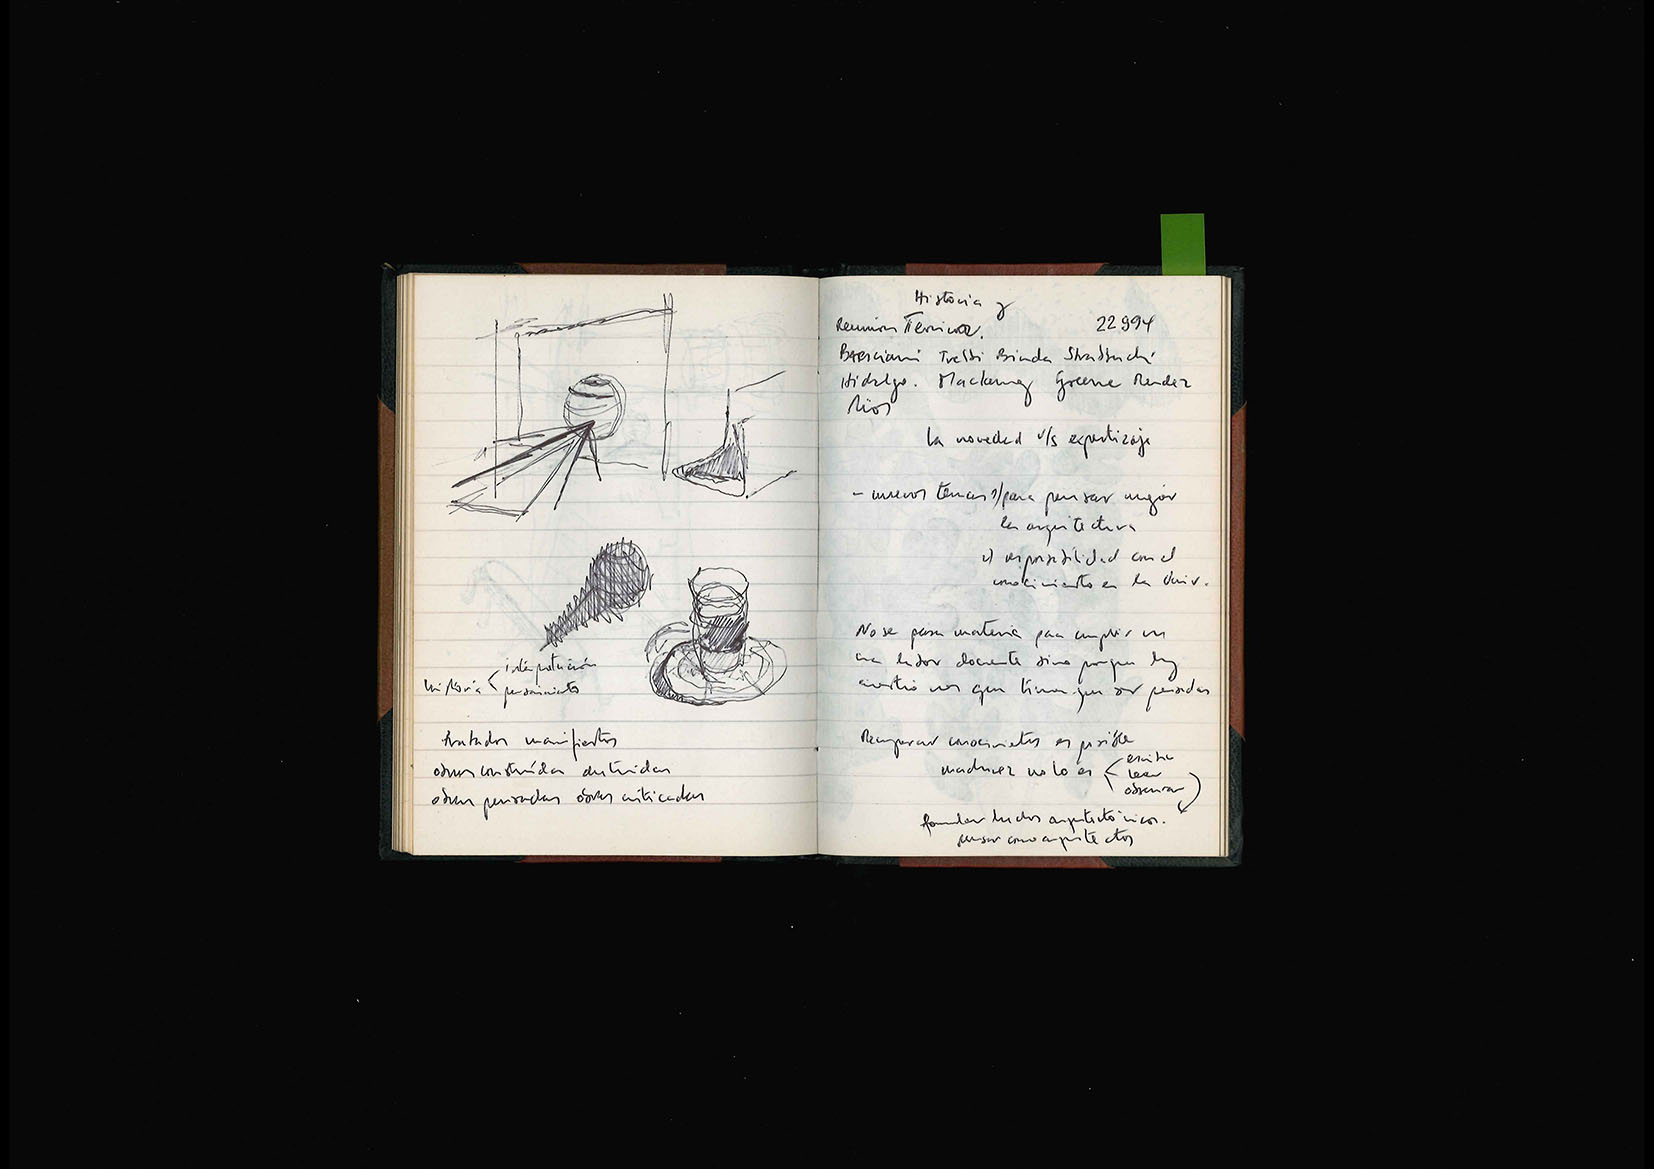 historia interpretación
pensamiento
tratados manifiestos
obras construídas destruidas
obras pensadas obras criticadas
Historia y
Reunión Teoricos. 22 9 94
Bresciani Trebbi Binda Strabucchi
Hidalgo. Mackenney Greene Mendez
Rios
la novedad v/s expertizaje
- nuevos temas 1) para pensar mejor
la arquitectura
2) responsabilidad con el
conocimiento en la Univ.
No se pasa materia para cumplir un
una labor docente sino porque hay
cuestiones que tienen que ser pensadas
Recuperar conocimientos es posible
madurez no lo es escribir
leer
observar
formular hechos arquitectónicos.
pensar como arquitectos